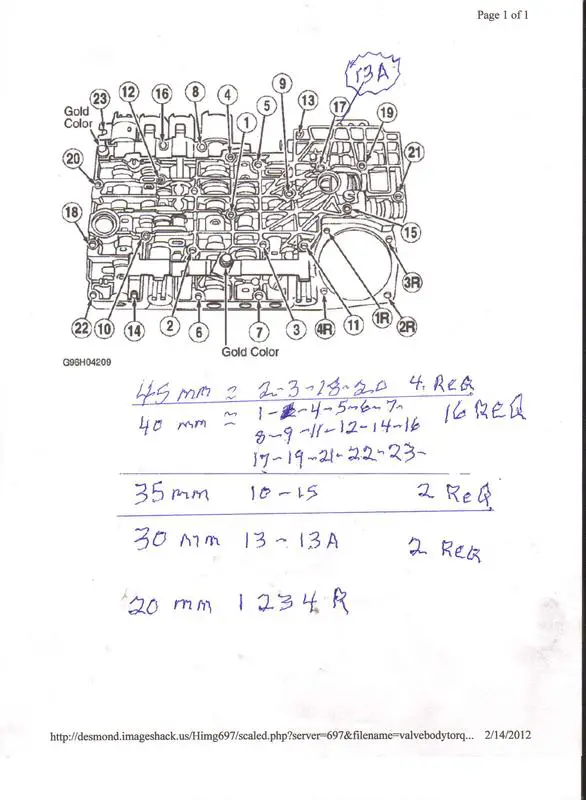 Page 1 of 1
13A
12 16 8 4 1 5 9 13 17 19
23
Gold
Color
20
21
18
15
3R
22 10 14 2 6 7 3 4R 11 1R 2R
Gold Color
G96H04209
45 mm = 2-3-18-20 4 REQ
40 mm = 1-4-5-6-7- 16 REQ
8-9-11-12-14-16
17-19-21-22-23-
35 mm 10-15 2 REQ
30 mm 13-13A 2 REQ
20 mm 1 2 3 4 R
http://desmond.imageshack.us/Himg697/scaled.php?server=697&filename=valvebodytorq... 2/14/2012